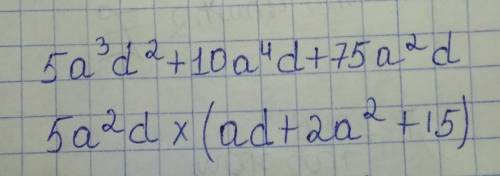 5a³d²+10a⁴d+75a²d
5a²d×(ad+2a²+15)